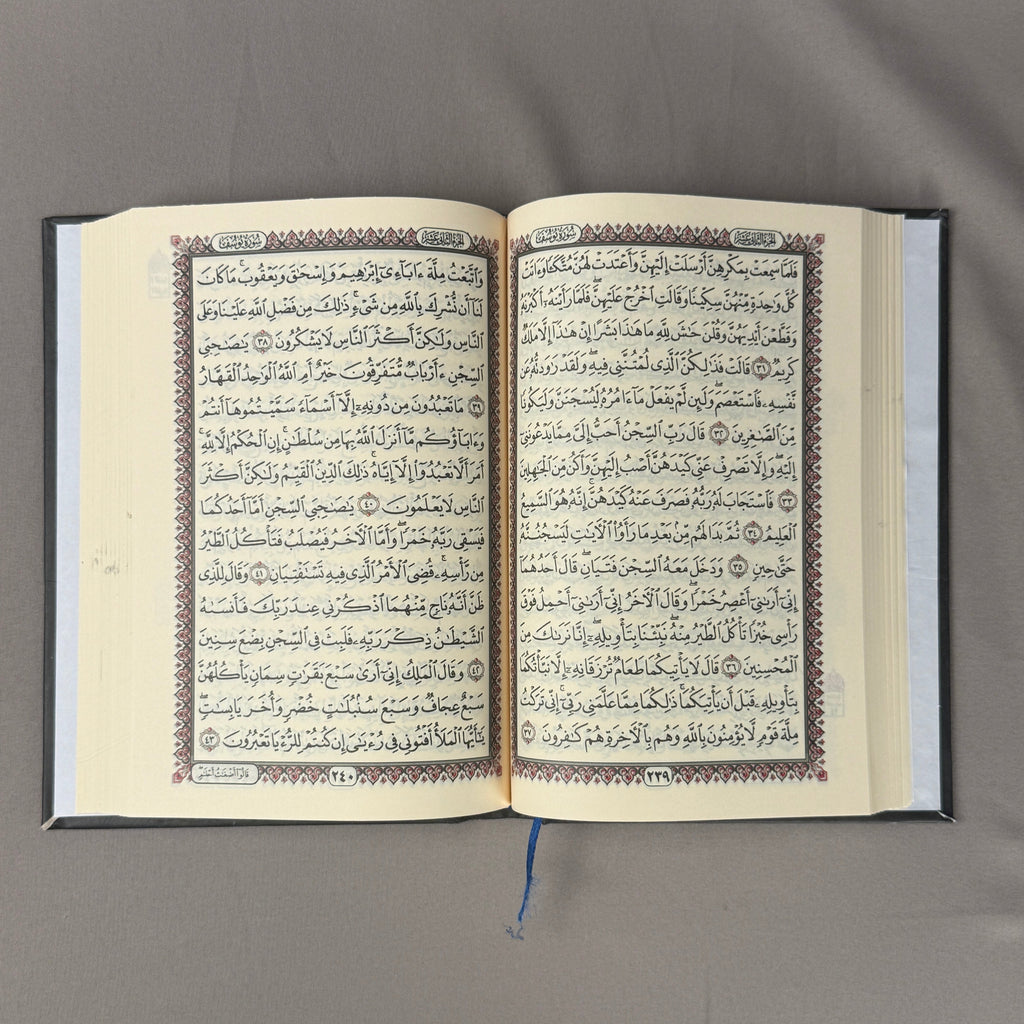 الجزء الثاني عشر
سورة يوسف
فَلَمَّا سَمِعَتْ بِمَكْرِهِنَّ أَرْسَلَتْ إِلَيْهِنَّ وَأَعْتَدَتْ لَهُنَّ مُتَّكَـًٔا وَءَاتَتْ
كُلَّ وَٰحِدَةٍ مِّنْهُنَّ سِكِّينًا وَقَالَتِ ٱخْرُجْ عَلَيْهِنَّ ۖ فَلَمَّا رَأَيْنَهُۥٓ أَكْبَرْنَهُۥ
وَقَطَّعْنَ أَيْدِيَهُنَّ وَقُلْنَ حَٰشَ لِلَّهِ مَا هَٰذَا بَشَرًا إِنْ هَٰذَآ إِلَّا مَلَكٌ
كَرِيمٌ ٣١ قَالَتْ فَذَٰلِكُنَّ ٱلَّذِى لُمْتُنَّنِى فِيهِ ۖ وَلَقَدْ رَٰوَدتُّهُۥ عَن
نَّفْسِهِۦ فَٱسْتَعْصَمَ ۖ وَلَئِن لَّمْ يَفْعَلْ مَآ ءَامُرُهُۥ لَيُسْجَنَنَّ وَلَيَكُونًا
مِّنَ ٱلصَّٰغِرِينَ ٣٢ قَالَ رَبِّ ٱلسِّجْنُ أَحَبُّ إِلَىَّ مِمَّا يَدْعُونَنِىٓ
إِلَيْهِ ۖ وَإِلَّا تَصْرِفْ عَنِّى كَيْدَهُنَّ أَصْبُ إِلَيْهِنَّ وَأَكُن مِّنَ ٱلْجَٰهِلِينَ
٣٣ فَٱسْتَجَابَ لَهُۥ رَبُّهُۥ فَصَرَفَ عَنْهُ كَيْدَهُنَّ ۚ إِنَّهُۥ هُوَ ٱلسَّمِيعُ
ٱلْعَلِيمُ ٣٤ ثُمَّ بَدَا لَهُم مِّنۢ بَعْدِ مَا رَأَوُا۟ ٱلْءَايَٰتِ لَيَسْجُنُنَّهُۥ
حَتَّىٰ حِينٍ ٣٥ وَدَخَلَ مَعَهُ ٱلسِّجْنَ فَتَيَانِ ۖ قَالَ أَحَدُهُمَآ
إِنِّىٓ أَرَىٰنِىٓ أَعْصِرُ خَمْرًا ۖ وَقَالَ ٱلْءَاخَرُ إِنِّىٓ أَرَىٰنِىٓ أَحْمِلُ فَوْقَ
رَأْسِى خُبْزًا تَأْكُلُ ٱلطَّيْرُ مِنْهُ ۖ نَبِّئْنَا بِتَأْوِيلِهِۦٓ ۖ إِنَّا نَرَىٰكَ مِنَ
ٱلْمُحْسِنِينَ ٣٦ قَالَ لَا يَأْتِيكُمَا طَعَامٌ تُرْزَقَانِهِۦٓ إِلَّا نَبَّأْتُكُمَا
بِتَأْوِيلِهِۦ قَبْلَ أَن يَأْتِيَكُمَا ۚ ذَٰلِكُمَا مِمَّا عَلَّمَنِى رَبِّىٓ ۚ إِنِّى تَرَكْتُ
مِلَّةَ قَوْمٍ لَّا يُؤْمِنُونَ بِٱللَّهِ وَهُم بِٱلْءَاخِرَةِ هُمْ كَٰفِرُونَ ٣٧
٢٣٩
الجزء الثاني عشر
سورة يوسف
وَٱتَّبَعْتُ مِلَّةَ ءَابَآءِىٓ إِبْرَٰهِيمَ وَإِسْحَٰقَ وَيَعْقُوبَ ۚ مَا كَانَ
لَنَآ أَن نُّشْرِكَ بِٱللَّهِ مِن شَىْءٍ ۚ ذَٰلِكَ مِن فَضْلِ ٱللَّهِ عَلَيْنَا وَعَلَى
ٱلنَّاسِ وَلَٰكِنَّ أَكْثَرَ ٱلنَّاسِ لَا يَشْكُرُونَ ٣٨ يَٰصَٰحِبَىِ
ٱلسِّجْنِ ءَأَرْبَابٌ مُّتَفَرِّقُونَ خَيْرٌ أَمِ ٱللَّهُ ٱلْوَٰحِدُ ٱلْقَهَّارُ
٣٩ مَا تَعْبُدُونَ مِن دُونِهِۦٓ إِلَّآ أَسْمَآءً سَمَّيْتُمُوهَآ أَنتُمْ
وَءَابَآؤُكُم مَّآ أَنزَلَ ٱللَّهُ بِهَا مِن سُلْطَٰنٍ ۚ إِنِ ٱلْحُكْمُ إِلَّا لِلَّهِ ۚ
أَمَرَ أَلَّا تَعْبُدُوٓا۟ إِلَّآ إِيَّاهُ ۚ ذَٰلِكَ ٱلدِّينُ ٱلْقَيِّمُ وَلَٰكِنَّ أَكْثَرَ
ٱلنَّاسِ لَا يَعْلَمُونَ ٤٠ يَٰصَٰحِبَىِ ٱلسِّجْنِ أَمَّآ أَحَدُكُمَا
فَيَسْقِى رَبَّهُۥ خَمْرًا ۖ وَأَمَّا ٱلْءَاخَرُ فَيُصْلَبُ فَتَأْكُلُ ٱلطَّيْرُ
مِن رَّأْسِهِۦ ۚ قُضِىَ ٱلْأَمْرُ ٱلَّذِى فِيهِ تَسْتَفْتِيَانِ ٤١ وَقَالَ لِلَّذِى
ظَنَّ أَنَّهُۥ نَاجٍ مِّنْهُمَا ٱذْكُرْنِى عِندَ رَبِّكَ فَأَنسَىٰهُ
ٱلشَّيْطَٰنُ ذِكْرَ رَبِّهِۦ فَلَبِثَ فِى ٱلسِّجْنِ بِضْعَ سِنِينَ
٤٢ وَقَالَ ٱلْمَلِكُ إِنِّىٓ أَرَىٰ سَبْعَ بَقَرَٰتٍ سِمَانٍ يَأْكُلُهُنَّ
سَبْعٌ عِجَافٌ وَسَبْعَ سُنۢبُلَٰتٍ خُضْرٍ وَأُخَرَ يَابِسَٰتٍ ۖ
يَٰٓأَيُّهَا ٱلْمَلَأُ أَفْتُونِى فِى رُءْيَٰىَ إِن كُنتُمْ لِلرُّءْيَا تَعْبُرُونَ ٤٣
٢٤٠
قَالُوٓا۟ أَضْغَٰثُ أَحْلَٰمٍ